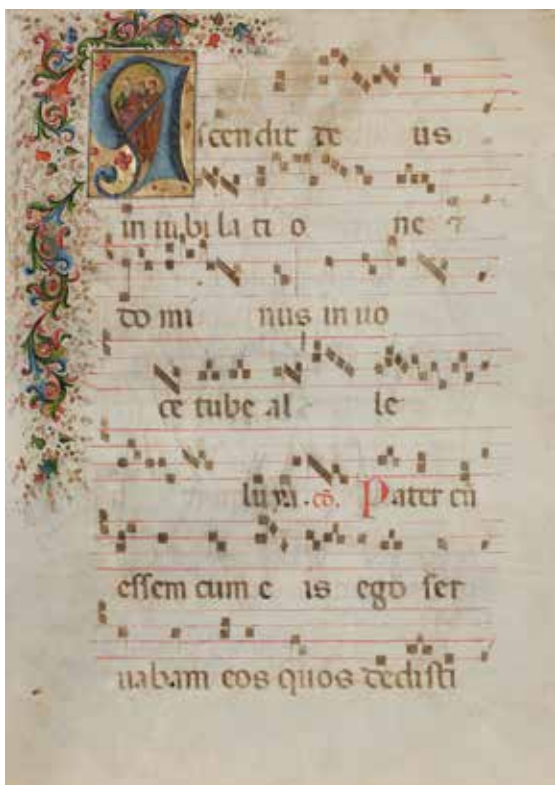 Ascendit de us
in iubi la ti o ne ⁊
do mi nus in uo
ce tube al le
lu ya . cō. Pater cū
essem cum e is ego ser
uabam eos quos dedisti